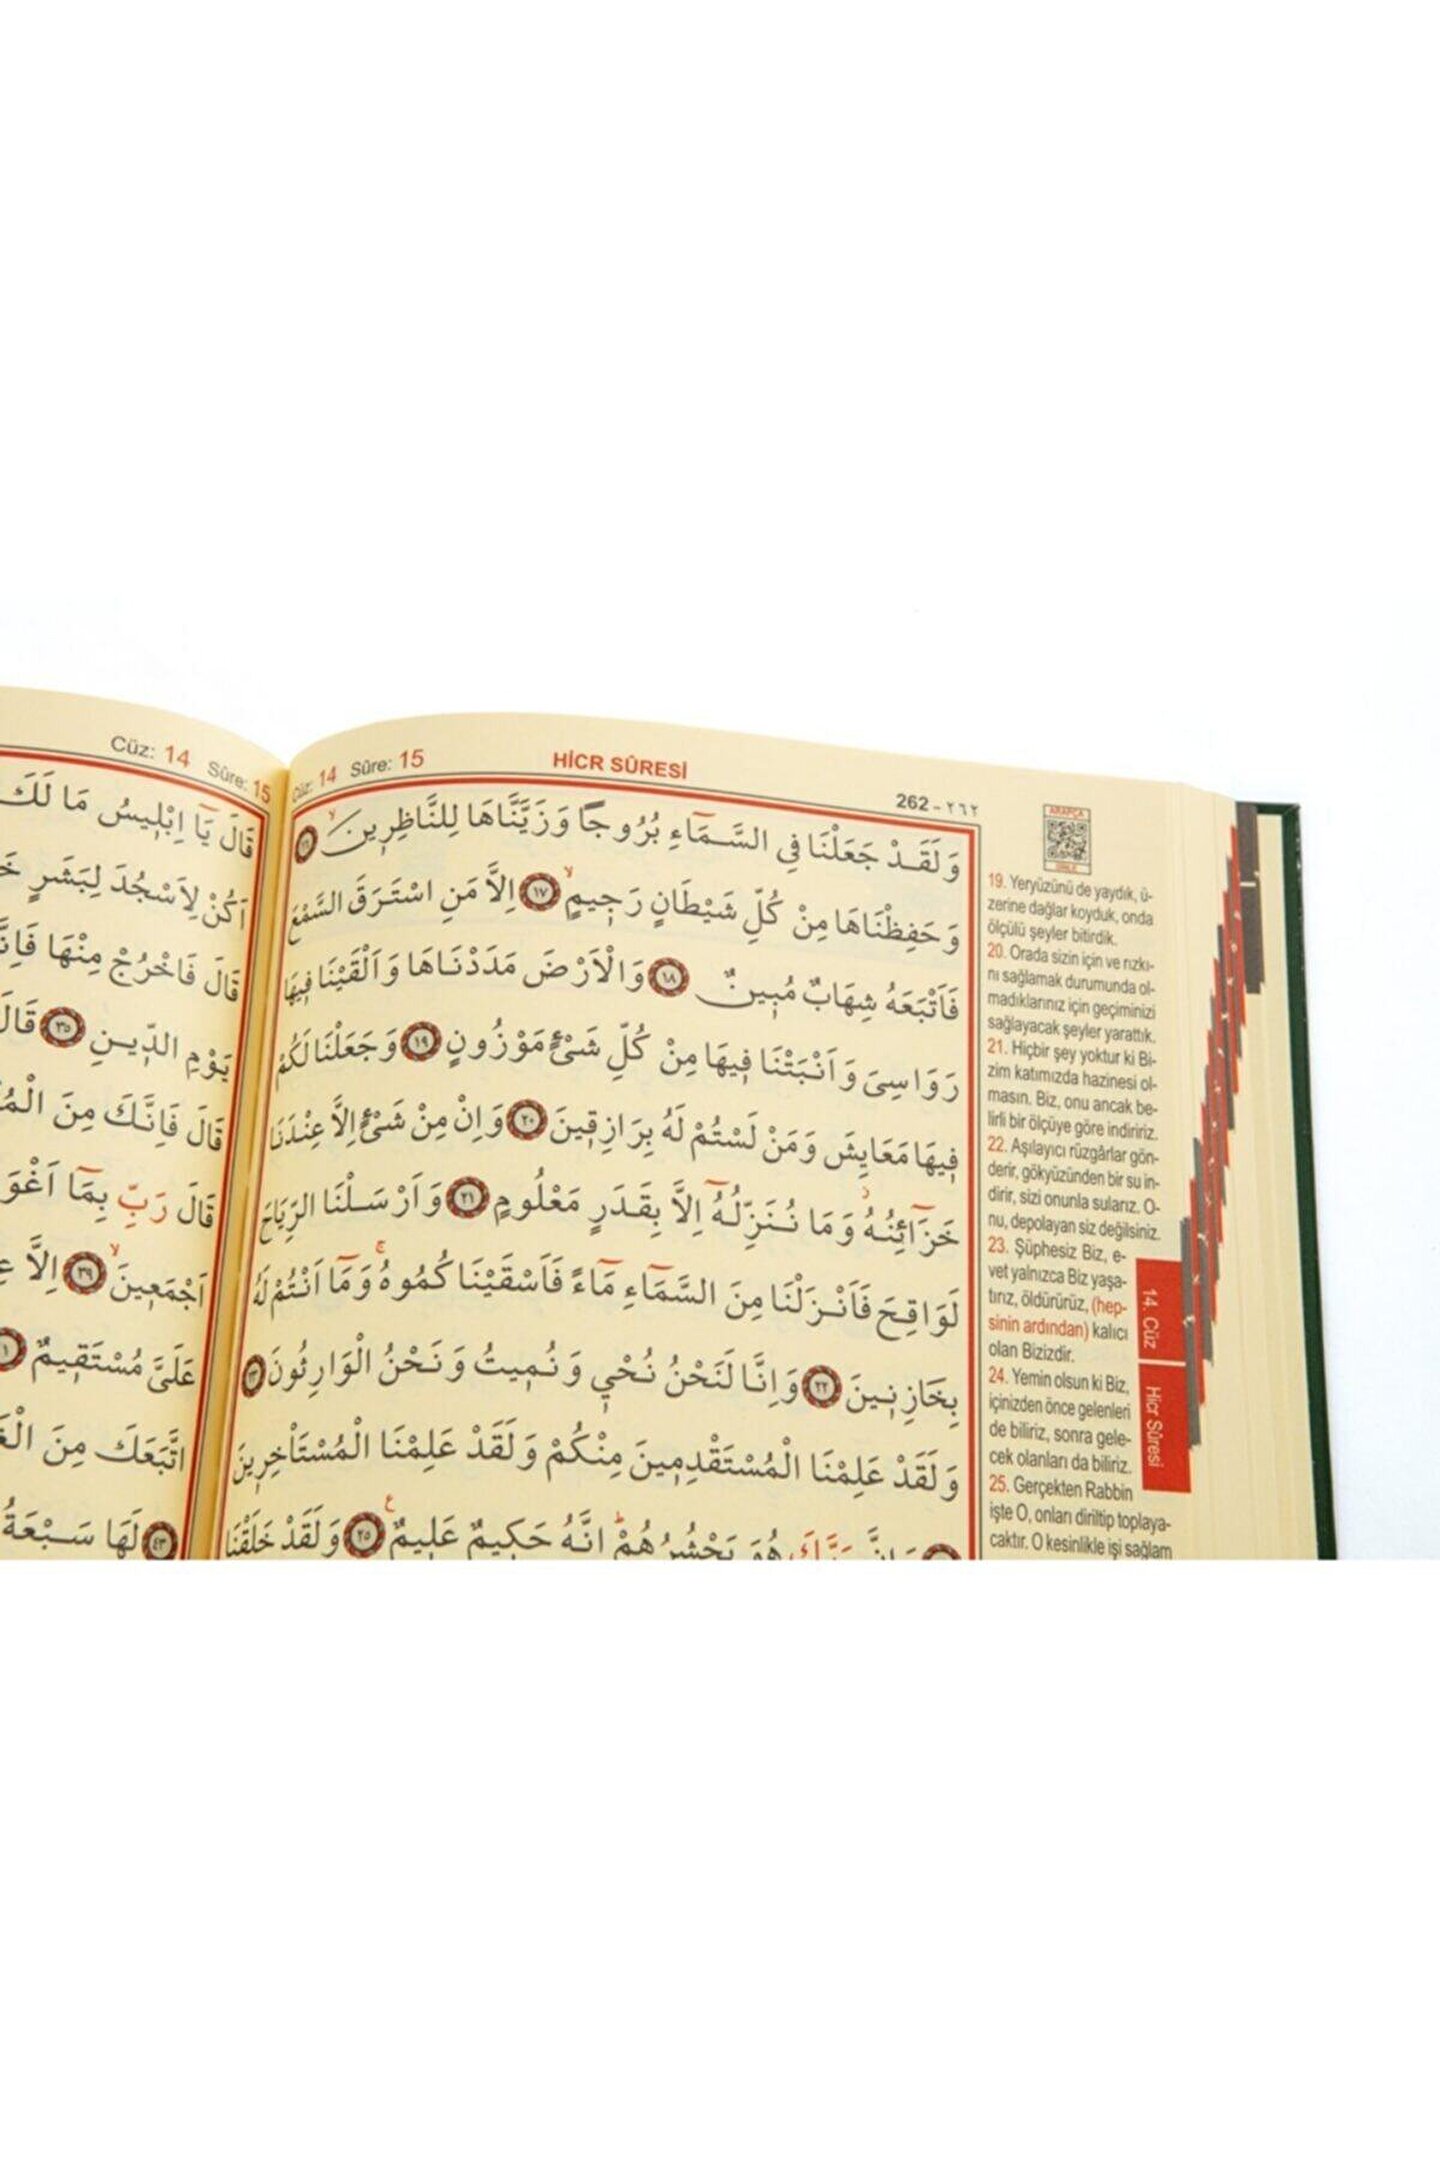 Cüz: 14 Sûre: 15
HİCR SÛRESİ
262 - ٢٦٢
وَلَقَدْ جَعَلْنَا فِي السَّمَٓاءِ بُرُوجًا وَزَيَّنَّاهَا لِلنَّاظِرِينَۙ ﴿١٦﴾
وَحَفِظْنَاهَا مِنْ كُلِّ شَيْطَانٍ رَجِيمٍۙ ﴿١٧﴾ اِلَّا مَنِ اسْتَرَقَ السَّمْعَ
فَاَتْبَعَهُ شِهَابٌ مُبِينٌ ﴿١٨﴾ وَالْاَرْضَ مَدَدْنَاهَا وَاَلْقَيْنَا فِيهَا
رَوَاسِيَ وَاَنْبَتْنَا فِيهَا مِنْ كُلِّ شَيْءٍ مَوْزُونٍ ﴿١٩﴾ وَجَعَلْنَا لَكُمْ
فِيهَا مَعَايِشَ وَمَنْ لَسْتُمْ لَهُ بِرَازِقِينَ ﴿٢٠﴾ وَاِنْ مِنْ شَيْءٍ اِلَّا عِنْدَنَا
خَزَٓائِنُهُۘ وَمَا نُنَزِّلُهُٓ اِلَّا بِقَدَرٍ مَعْلُومٍ ﴿٢١﴾ وَاَرْسَلْنَا الرِّيَاحَ
لَوَاقِحَ فَاَنْزَلْنَا مِنَ السَّمَٓاءِ مَٓاءً فَاَسْقَيْنَاكُمُوهُۚ وَمَٓا اَنْتُمْ لَهُ
بِخَازِنِينَ ﴿٢٢﴾ وَاِنَّا لَنَحْنُ نُحْيِ وَنُمِيتُ وَنَحْنُ الْوَارِثُونَ ﴿٢٣﴾
وَلَقَدْ عَلِمْنَا الْمُسْتَقْدِمِينَ مِنْكُمْ وَلَقَدْ عَلِمْنَا الْمُسْتَاْخِرِينَ
وَاِنَّ رَبَّكَ هُوَ يَحْشُرُهُمْۜ اِنَّهُ حَكِيمٌ عَلِيمٌ ﴿٢٥﴾ وَلَقَدْ خَلَقْنَا
ARAPÇA
DİNLE
19. Yeryüzünü de yaydık, ü-
zerine dağlar koyduk, onda
ölçülü şeyler bitirdik.
20. Orada sizin için ve rızkı-
nı sağlamak durumunda ol-
madıklarınız için geçiminizi
sağlayacak şeyler yarattık.
21. Hiçbir şey yoktur ki Bi-
zim katımızda hazinesi ol-
masın. Biz, onu ancak be-
lirli bir ölçüye göre indiririz.
22. Aşılayıcı rüzgârlar gön-
derir, gökyüzünden bir su in-
dirir, sizi onunla sularız. O-
nu, depolayan siz değilsiniz.
23. Şüphesiz Biz, e-
vet yalnızca Biz yaşa-
tırız, öldürürüz, (hep-
sinin ardından) kalıcı
olan Bizizdir.
24. Yemin olsun ki Biz,
içinizden önce gelenleri
de biliriz, sonra gele-
cek olanları da biliriz.
25. Gerçekten Rabbin
işte O, onları diriltip toplaya-
caktır. O kesinlikle işi sağlam
14. Cüz
Hicr Sûresi
Cüz: 14 Sûre: 15
قَالَ يَٓا اِبْلِيسُ مَا لَكَ
اَكُنْ لِاَسْجُدَ لِبَشَرٍ
قَالَ فَاخْرُجْ مِنْهَا
يَوْمِ الدِّينِ ﴿٣٥﴾ قَالَ
قَالَ فَاِنَّكَ مِنَ
قَالَ رَبِّ بِمَٓا
اَجْمَعِينَۙ ﴿٣٩﴾ اِلَّا
عَلَيَّ مُسْتَقِيمٌ
اتَّبَعَكَ مِنَ
﴿٤٣﴾ لَهَا سَبْعَةُ